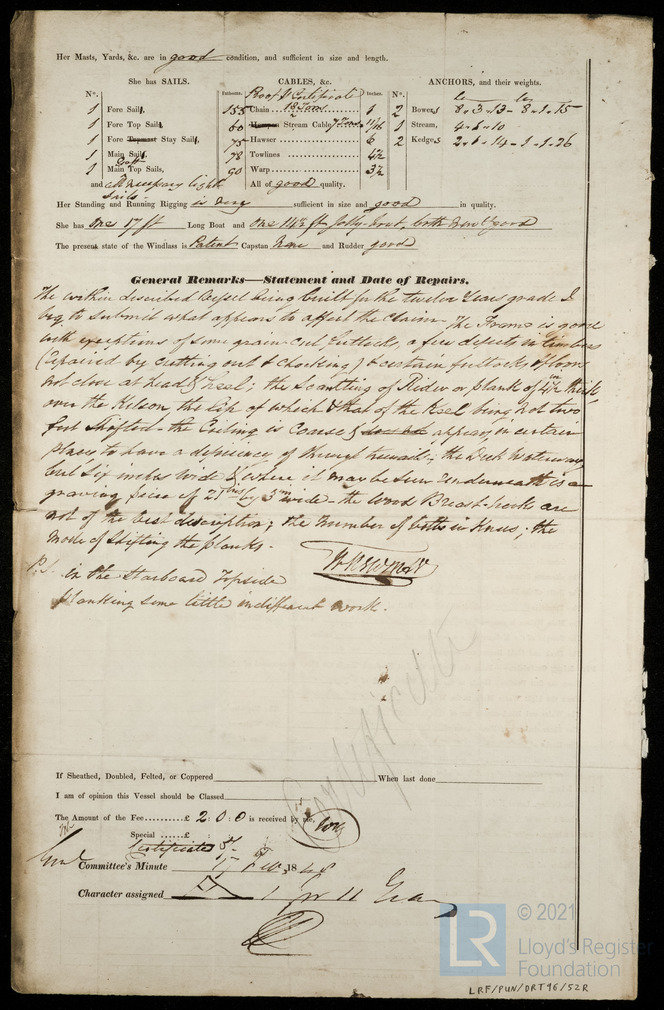 Her Masts, Yards, &c. are in good condition, and sufficient in size and length.
She has SAILS.
CABLES, &c.
ANCHORS, and their weights.
Nº.
Fathoms.
Proof & Certificate
Inches.
Nº.
1 Fore Sails,
155 Chain 18 Tons 1
2 Bowers, 8-3-13 - 8-1-15
1 Fore Top Sails,
60 Hempen Stream Cable 7 Tons 11/16
1 Stream, 4-0-10
1 Fore Topmast Stay Sails,
75 Hawser 6
2 Kedges, 2-1-14 - 1-1-26
1 Main Sails,
78 Towlines 4½
1 Main Gaff Top Sails,
90 Warp 3½
and all necessary light sails
All of good quality.
Her Standing and Running Rigging is very sufficient in size and good in quality.
She has One 17 ft Long Boat and one 14½ ft Jolly boat, both new & good
The present state of the Windlass is Patent Capstan None and Rudder good
General Remarks—Statement and Date of Repairs.
The within described Vessel being built for the twelve Years grade I
beg to submit what appears to affect the Claim. The Frame is good
with exceptions of some grain cut futtocks, a few defects in timbers
(repaired by cutting out & chocking) & certain futtocks of floors
not close at head & heel; the Scantling of Rider or plank of 4½ in thick
over the Kelson the lip of which & that of the Keel being not two
feet shifted - the Ceiling is Coarse & appears in certain
places to have a deficiency of through treenails; the Deck Waterway
but Six inches wide & where it may be seen Underneath is a
graving piece of by 3 in wide - the Wood Breast-hooks are
not of the best description; the number of bolts in Knees; the
mode of Shifting the planks.
P.S. in the Starboard Topside
planking some little indifferent work.
Certificate
If Sheathed, Doubled, Felted, or Coppered When last done
I am of opinion this Vessel should be Classed
The Amount of the Fee £ 2 : 0 : 0 is received by me,
Special £ :
Certificate 5/
Committee's Minute 17 Feb 1848
Character assigned A 1 for 11 Years
© 2021
Lloyd's Register
Foundation
LR
LRF/PUN/DRT96/52R